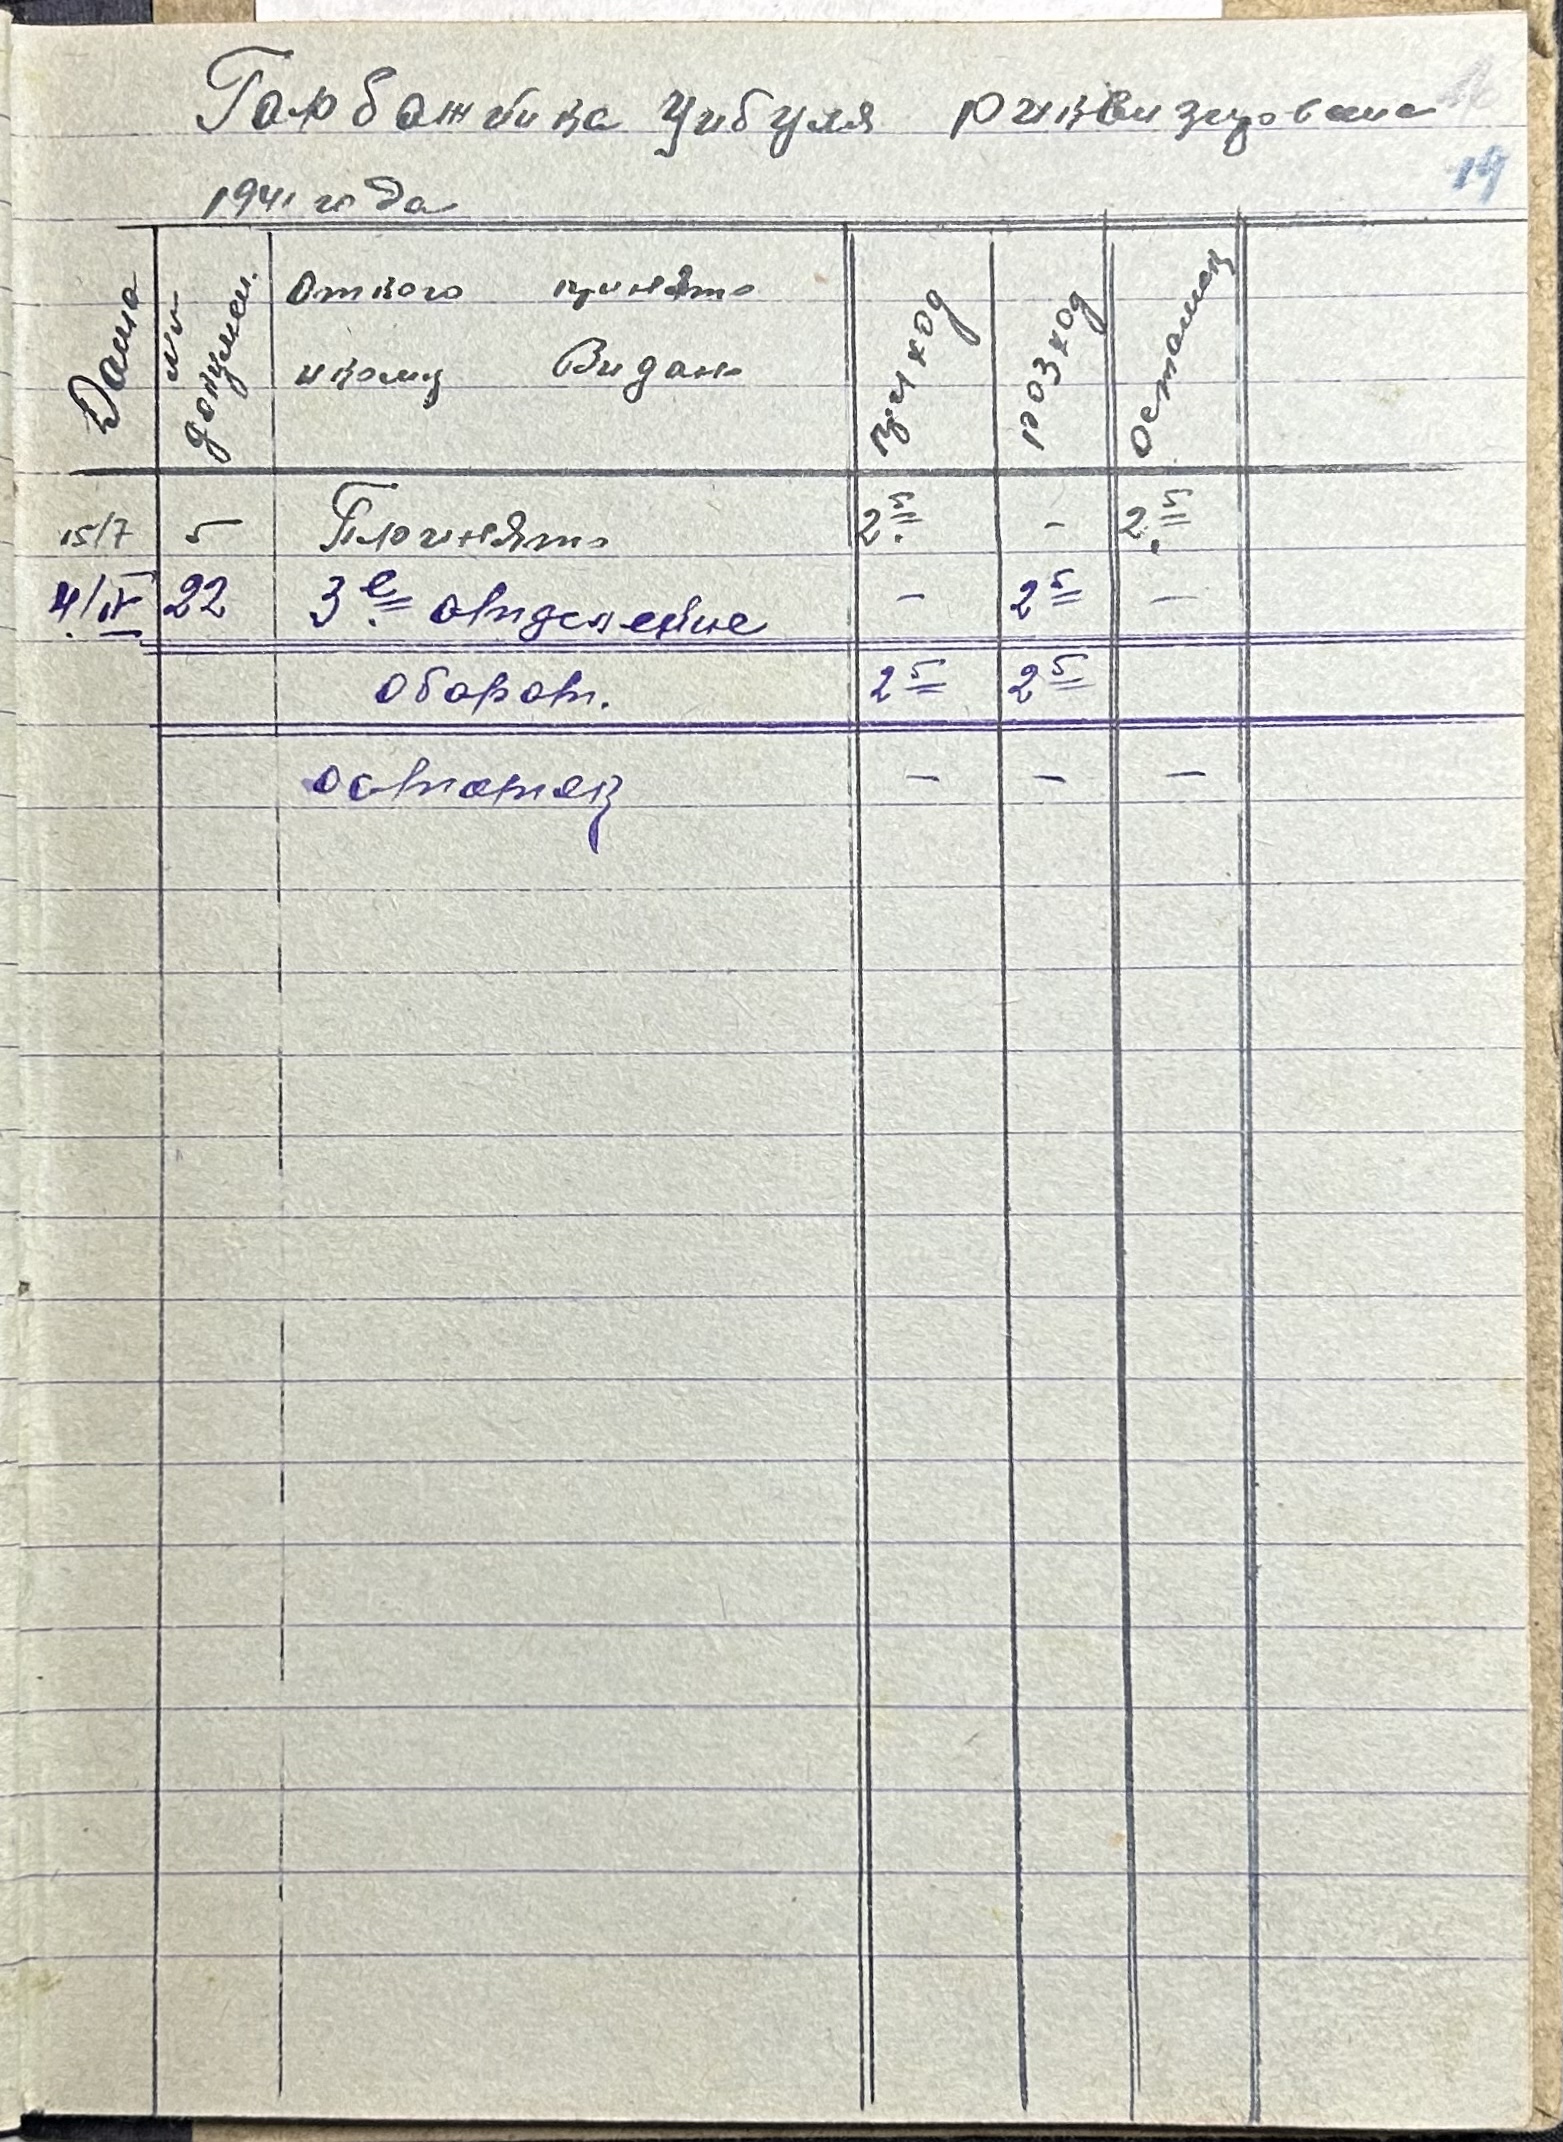 Гарбажийка Цибуля риквизирована
19
1941 года
Дата
№№ докумен.
От кого принято
и кому Видано
приход
розход
остаток
15/7 5 Принято 2 5 - 2 5
4/IV 22 3е отделение - 2 5 -
оборот. 2 5 2 5
остаток - - -